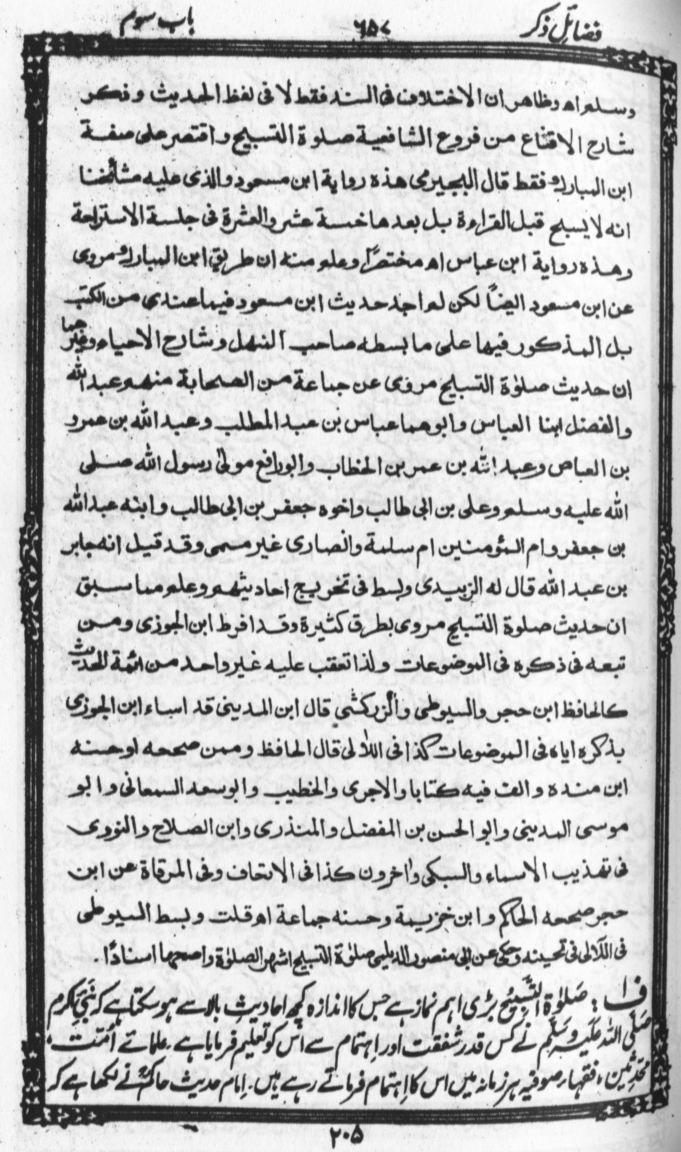 فضائل ذکر ۶۵۷ باب سوم
وسلم اه وظاهر ان الاختلاف فی السند فقط لا فی لفظ الحدیث وذکر
شارح الاقناع من فروع الشافعیة صلوة التسبیح واقتصر علی صفة
ابن المبارك فقط قال البجیرمی هذه روایة ابن مسعود والذی علیه مشائخنا
انه لا یسبح قبل القراءة بل بعدها خمسة عشر والعشرة فی جلسة الاستراحة
وهذه روایة ابن عباس اه مختصرًا وعلم منه ان طریق ابن المبارك مروی
عن ابن مسعود ایضاً لکن لم اجد حدیث ابن مسعود فیما عندی من الکتب
بل المذکور فیها علی ما بسطه صاحب المنهل وشارح الاحیاء وغیرهما
ان حدیث صلوٰة التسبیح مروی عن جماعة من الصحابة منهم عبد الله
والفضل ابنا العباس وابوهما عباس بن عبد المطلب وعبد الله بن عمرو
بن العاص وعبد الله بن عمر بن الخطاب وابو رافع مولیٰ رسول الله صلی
الله علیه وسلم وعلی بن ابی طالب واخوه جعفر بن ابی طالب وابنه عبد الله
بن جعفر وام المؤمنین ام سلمة وانصاری غیر مسمی وقد قیل انه جابر
بن عبد الله قال له الزبیدی وبسط فی تخریج احادیثهم وعلم مما سبق
ان حدیث صلوة التسبیح مروی بطرق کثیرة وقد افرط ابن الجوزی ومن
تبعه فی ذکره فی الموضوعات ولذا تعقب علیه غیر واحد من ائمة الحدیث
کالحافظ ابن حجر والسیوطی والزرکشی قال ابن المدینی قد اساء ابن الجوزی
بذکره ایاه فی الموضوعات کذا فی اللآلی قال الحافظ وممن صححه او حسنه
ابن منده والف فیه کتابا والاجری والخطیب وابو سعد السمعانی وابو
موسی المدینی وابو الحسن بن المفضل والمنذری وابن الصلاح والنووی
فی تهذیب الاسماء والسبکی واٰخرون کذا فی الاتحاف وفی المرقاة عن ابن
حجر صححه الحاکم وابن خزیمة وحسنه جماعة اه قلت وبسط السیوطی
فی اللآلی فی تحسینه وحکی عن ابی منصور الدیلمی صلوٰة التسبیح اشهر الصلوٰة واصحها اسنادًا۔
ف ۱: صَلوٰۃُ التَّسبِیح بڑی اہم نماز ہے جس کا اندازہ کچھ احادیث بالا سے ہو سکتا ہے کہ نبیِ مکرم
صَلَّی اللہُ عَلَیہِ وَسَلَّم نے کس قدر شفقت اور اہتمام سے اس کو تعلیم فرمایا ہے۔ علمائے اُمّت،
محدّثین، فقہاء، صوفیہ ہر زمانہ میں اس کا اہتمام فرماتے رہے ہیں۔ امام حدیث حاکمؒ نے لکھا ہے کہ
۲۰۵